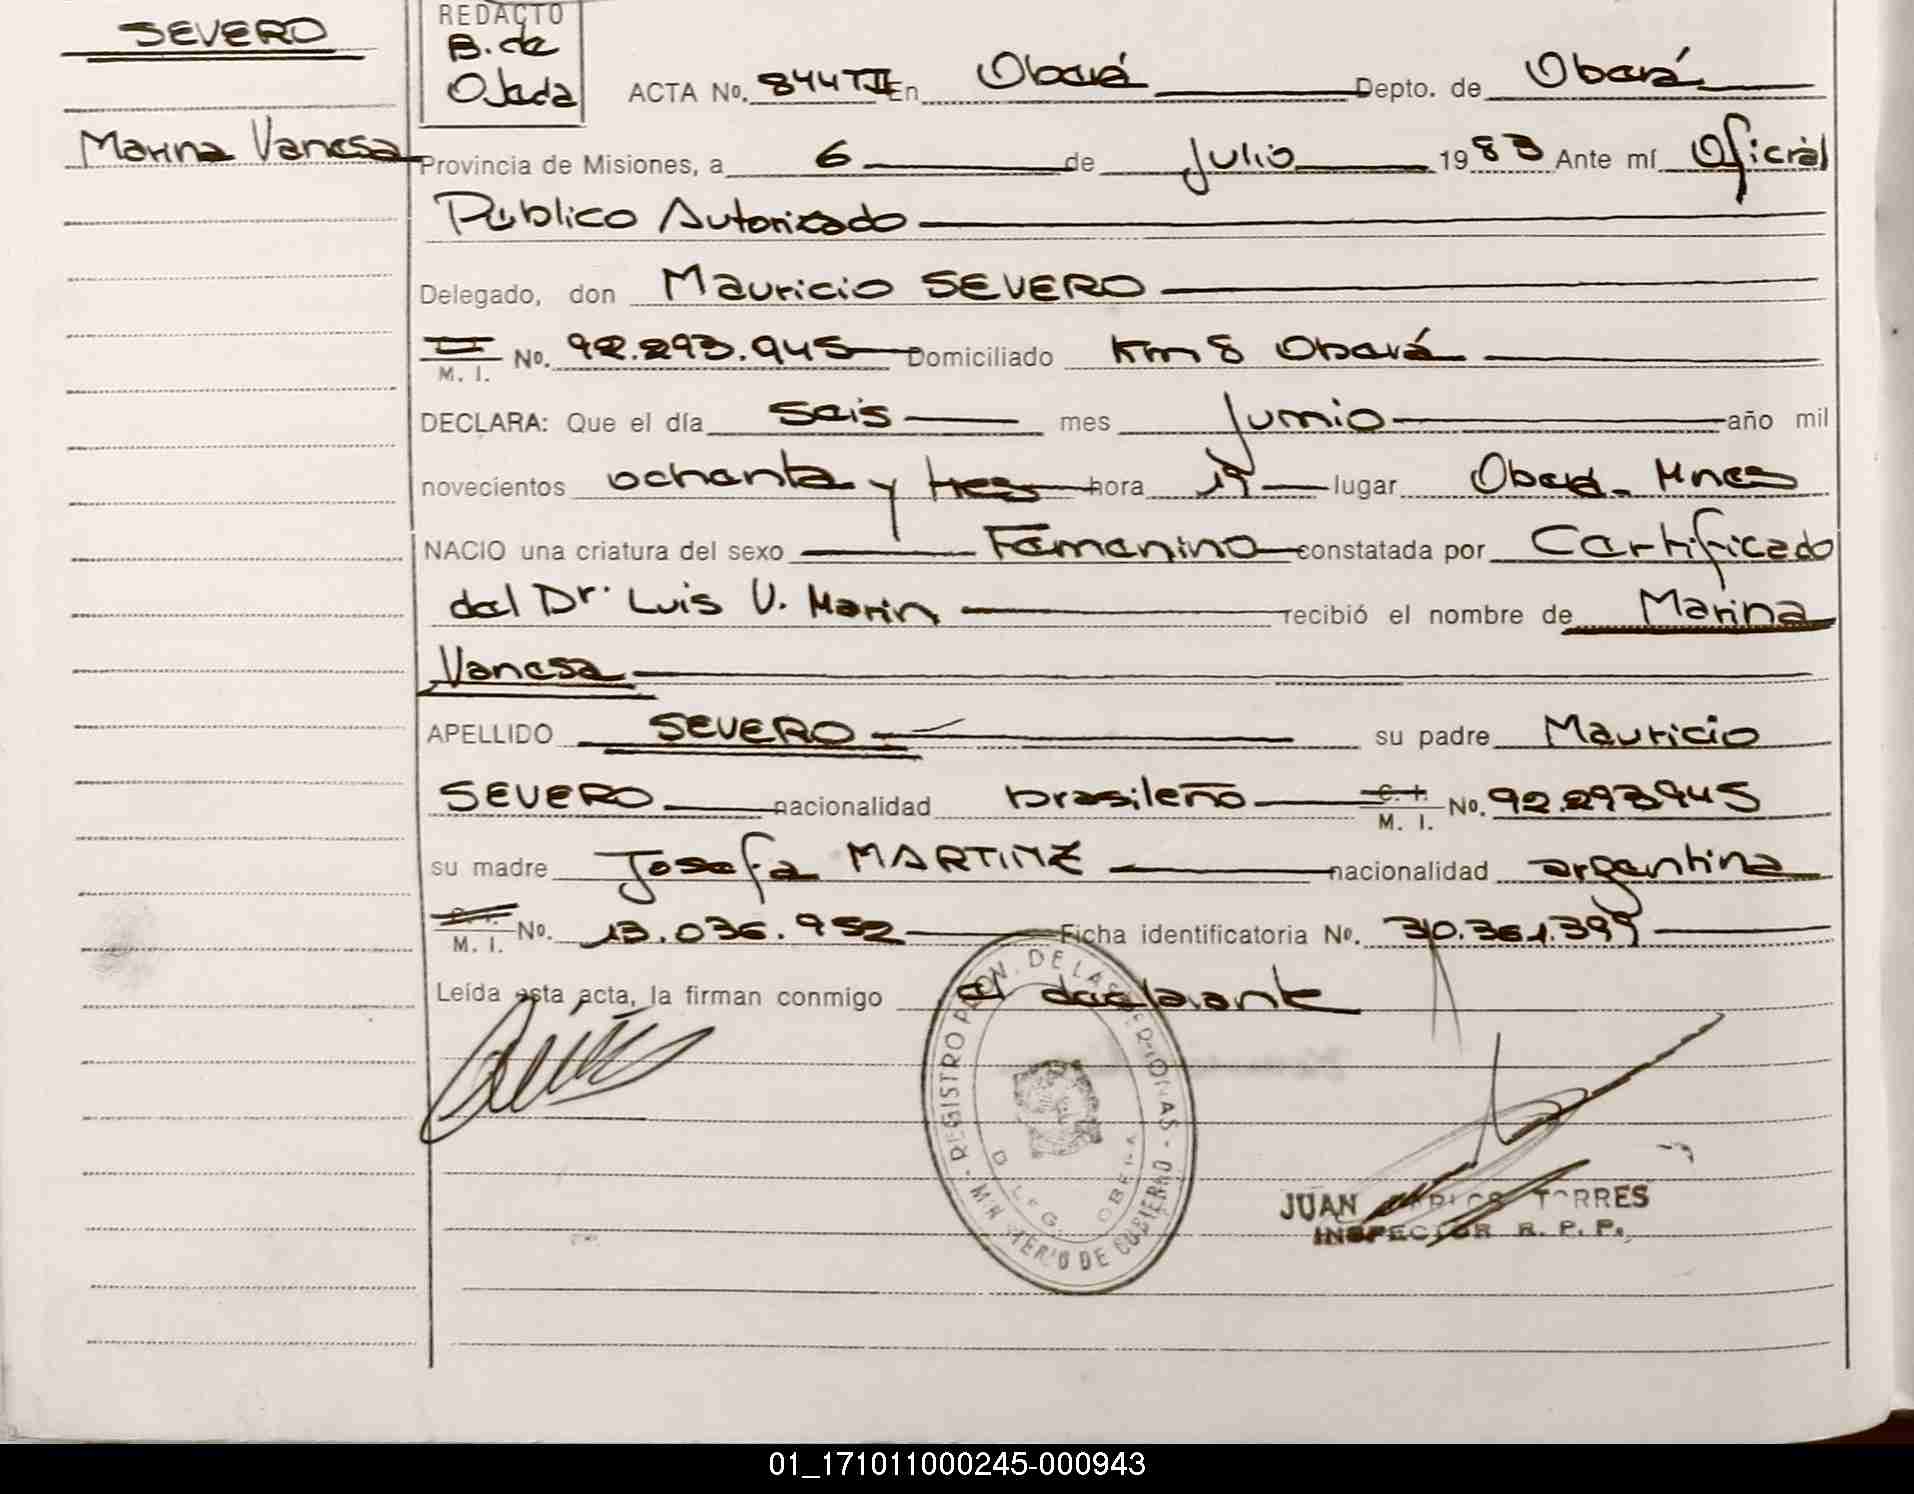 SEVERO
REDACTO
B. de
Ojeda
ACTA No. 844TII En Oberá Depto. de Oberá
Marina Vanesa
Provincia de Misiones, a 6 de Julio 1983 Ante mí Oficial
Público Autorizado
Delegado, don Mauricio SEVERO
M. I. No. 92.293.945 Domiciliado Km 8 Oberá
DECLARA: Que el día seis mes Junio año mil
novecientos ochenta y tres hora 19 lugar Oberá - Mnes
NACIO una criatura del sexo Femenino constatada por Certificado
del Dr. Luis V. Marin recibió el nombre de Marina
Vanesa
APELLIDO SEVERO su padre Mauricio
SEVERO nacionalidad brasileño C. I. M. I. No. 92.293945
su madre Josefa MARTINZ nacionalidad argentina
M. I. No. 13.036.952 Ficha identificatoria No. 30.361.399
Leída esta acta, la firman conmigo el declarante
REGISTRO PROV. DE LAS PERSONAS - MINISTERIO DE GOBIERNO -
DELEG. OBERA
JUAN CARLOS TORRES
INSPECTOR R. P. P.
01_171011000245-000943